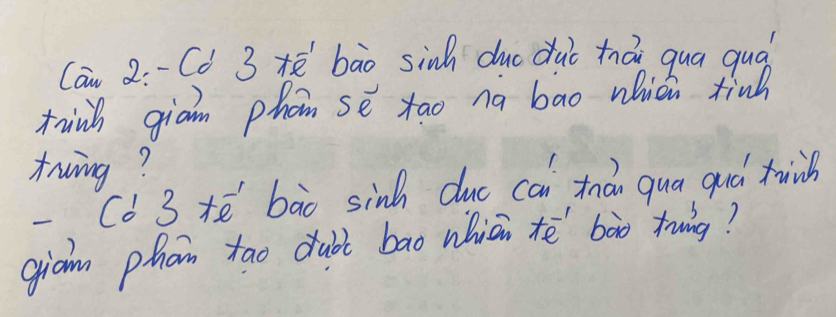 Câu 2: - Có 3 tế bào sinh dục đực trải qua quá
trình giảm phân sẽ tạo ra bao nhiên tinh
trùng?
- Có 3 tế bào sinh dục cái trải qua quá trình
giảm phân tạo được bao nhiên tế bào trứng?